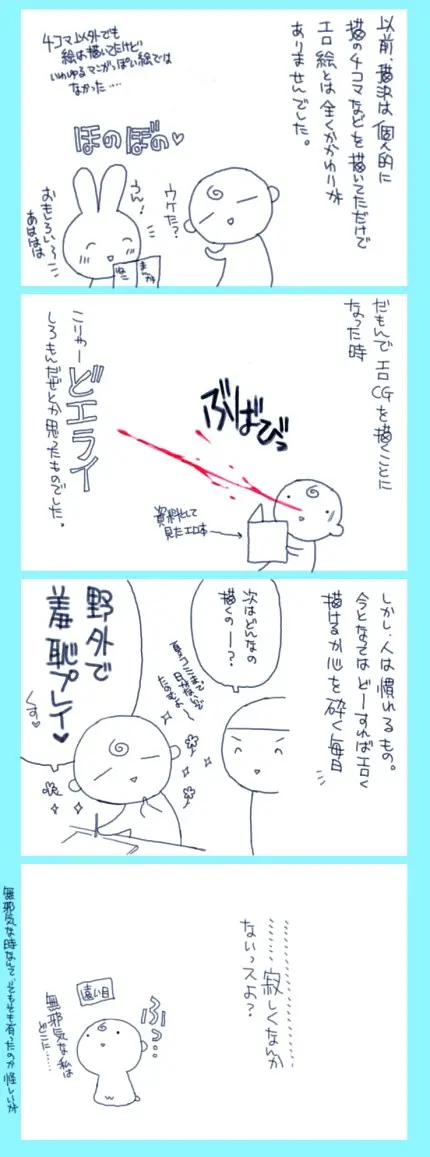 以前、猫沢は個人的に
猫の4コマなどを描いてただけで
エロ絵とは全くかかわりが
ありませんでした。
4コマ以外でも
絵は描いてたけど
いわゆるマンガっぽい絵では
なかった‥‥
ほのぼの♡
ウケた?
うん!
おもしろい〜
あははは
だもんでエロCGを描くことに
なった時
ぶばびっ
資料として
見たエロ本
こりゃーどエライ
しろもんだぜとか思ったものでした。
しかし、人は慣れるもの。
今となってはどーすればエロく
描けるか心を砕く毎日
次はどんなの
描くのー?
夏コミまで
日がないんで
たのむよ〜
野外で
羞恥プレイ♡
くす♡
‥‥‥‥寂しくなんか
ないっスよ?
ふっ‥
遠い目
無邪気な私は
どこに‥‥
無邪気な時なんて、そもそも有ったのか怪しいが